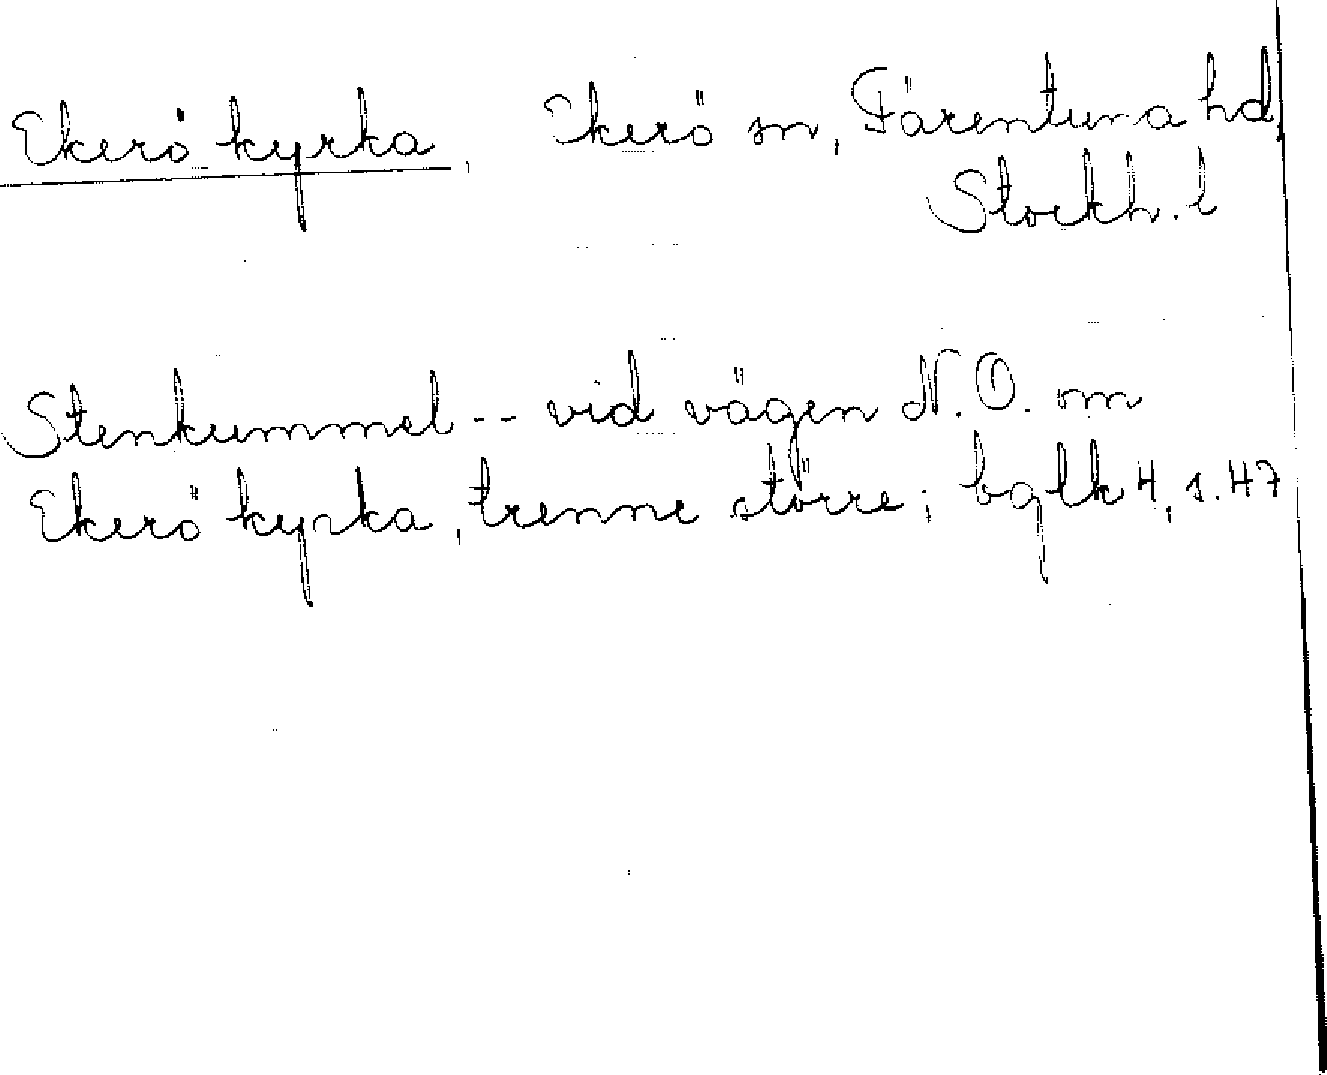 Ekerö kyrka, Ekerö sn, Färentuna hd,
Stockh. l
Stenkummel -- vid vägen N.O. om
Ekerö kyrka, trenne större; bglk 4, s. 47